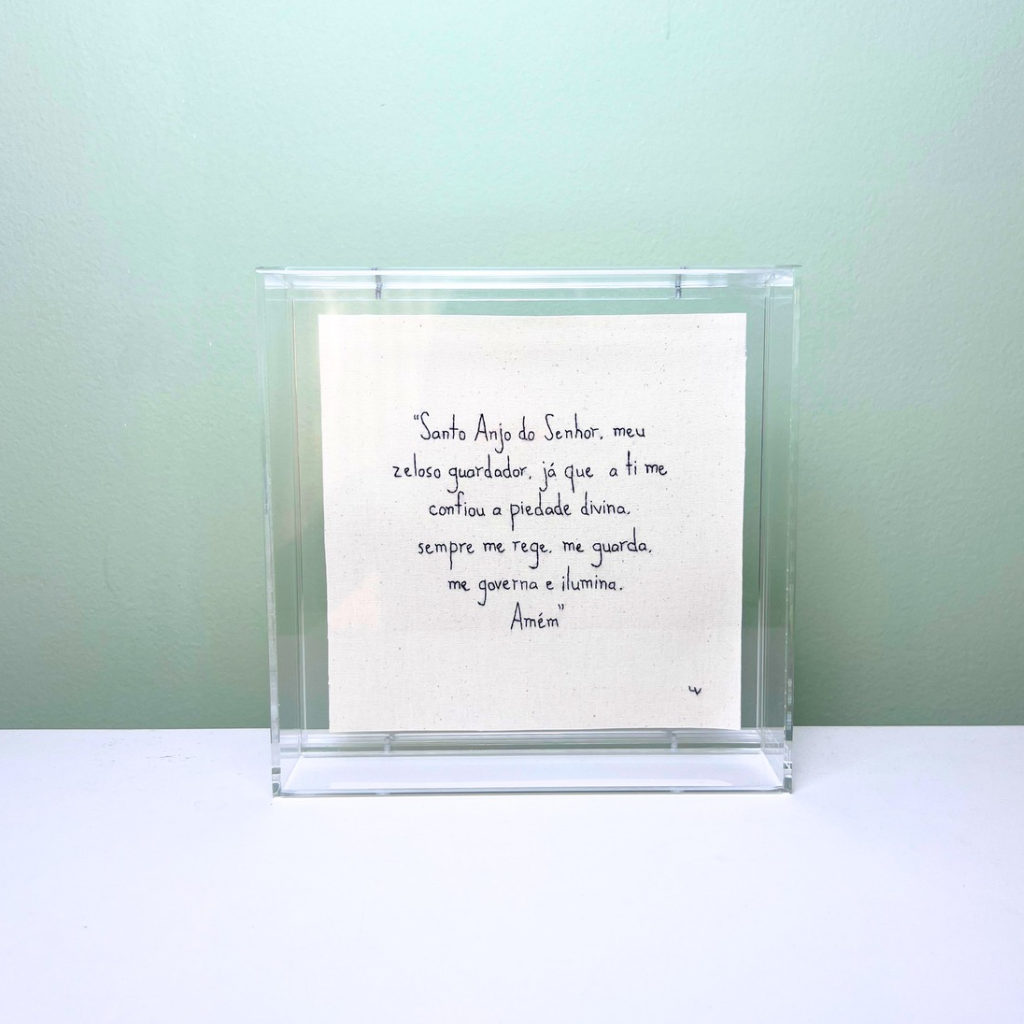 “Santo Anjo do Senhor, meu
zeloso guardador, já que a ti me
confiou a piedade divina,
sempre me rege, me guarda,
me governa e ilumina.
Amém”